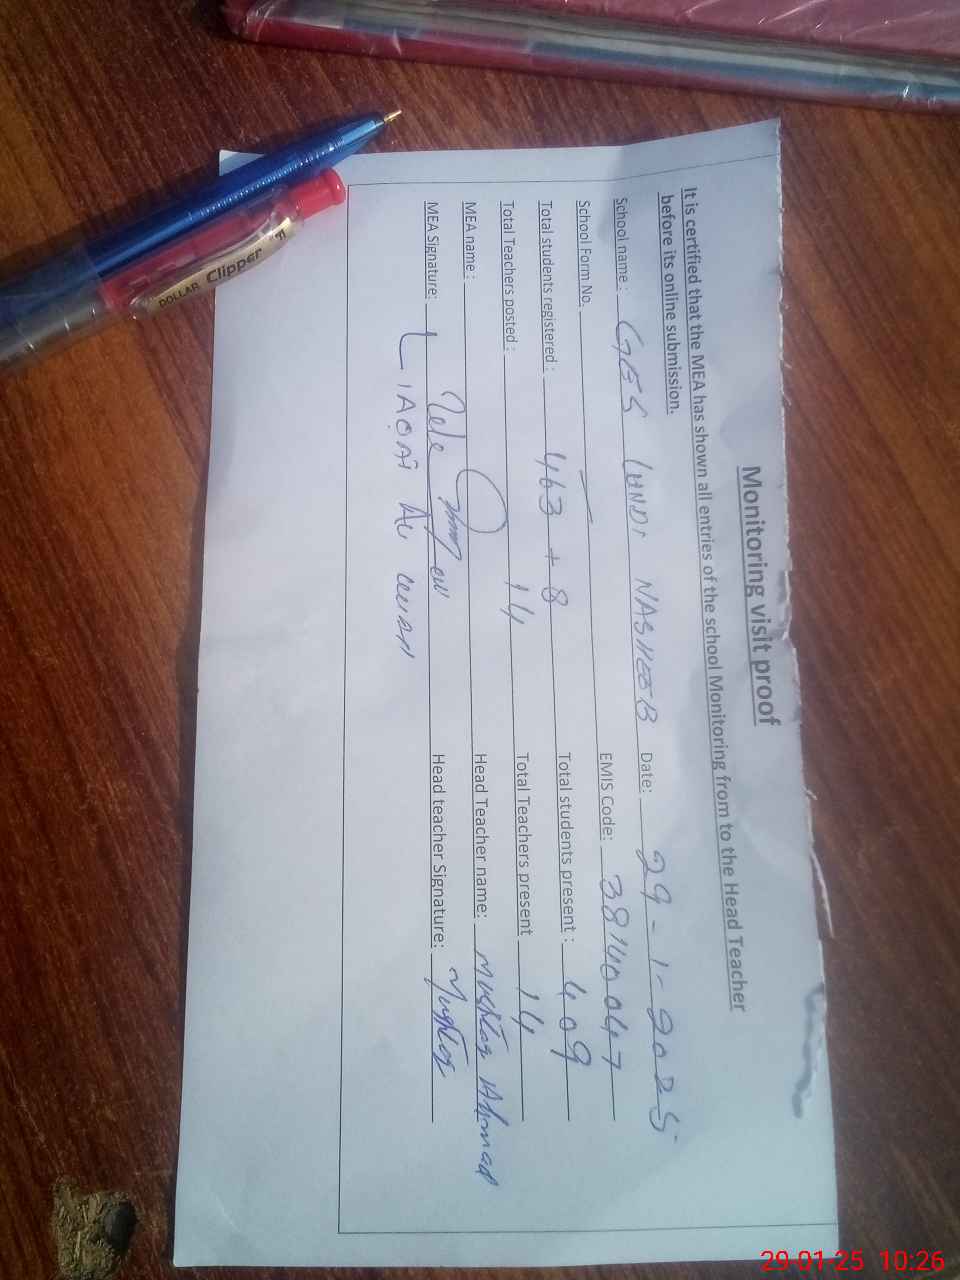 Monitoring visit proof
It is certified that the MEA has shown all entries of the school Monitoring from to the Head Teacher
before its online submission.
School name : GES LUNDI NASHEEB Date: 29-1-2025
School Form No. — EMIS Code: 38140047
Total students registered : 463 + 8 Total students present : 409
Total Teachers posted : 14 Total Teachers present 14
MEA name : Head Teacher name: Mushtaq Ahmad
MEA Signature: Head teacher Signature: Mushtaq
LIAQAT
DOLLAR Clipper
29-01-25 10:26